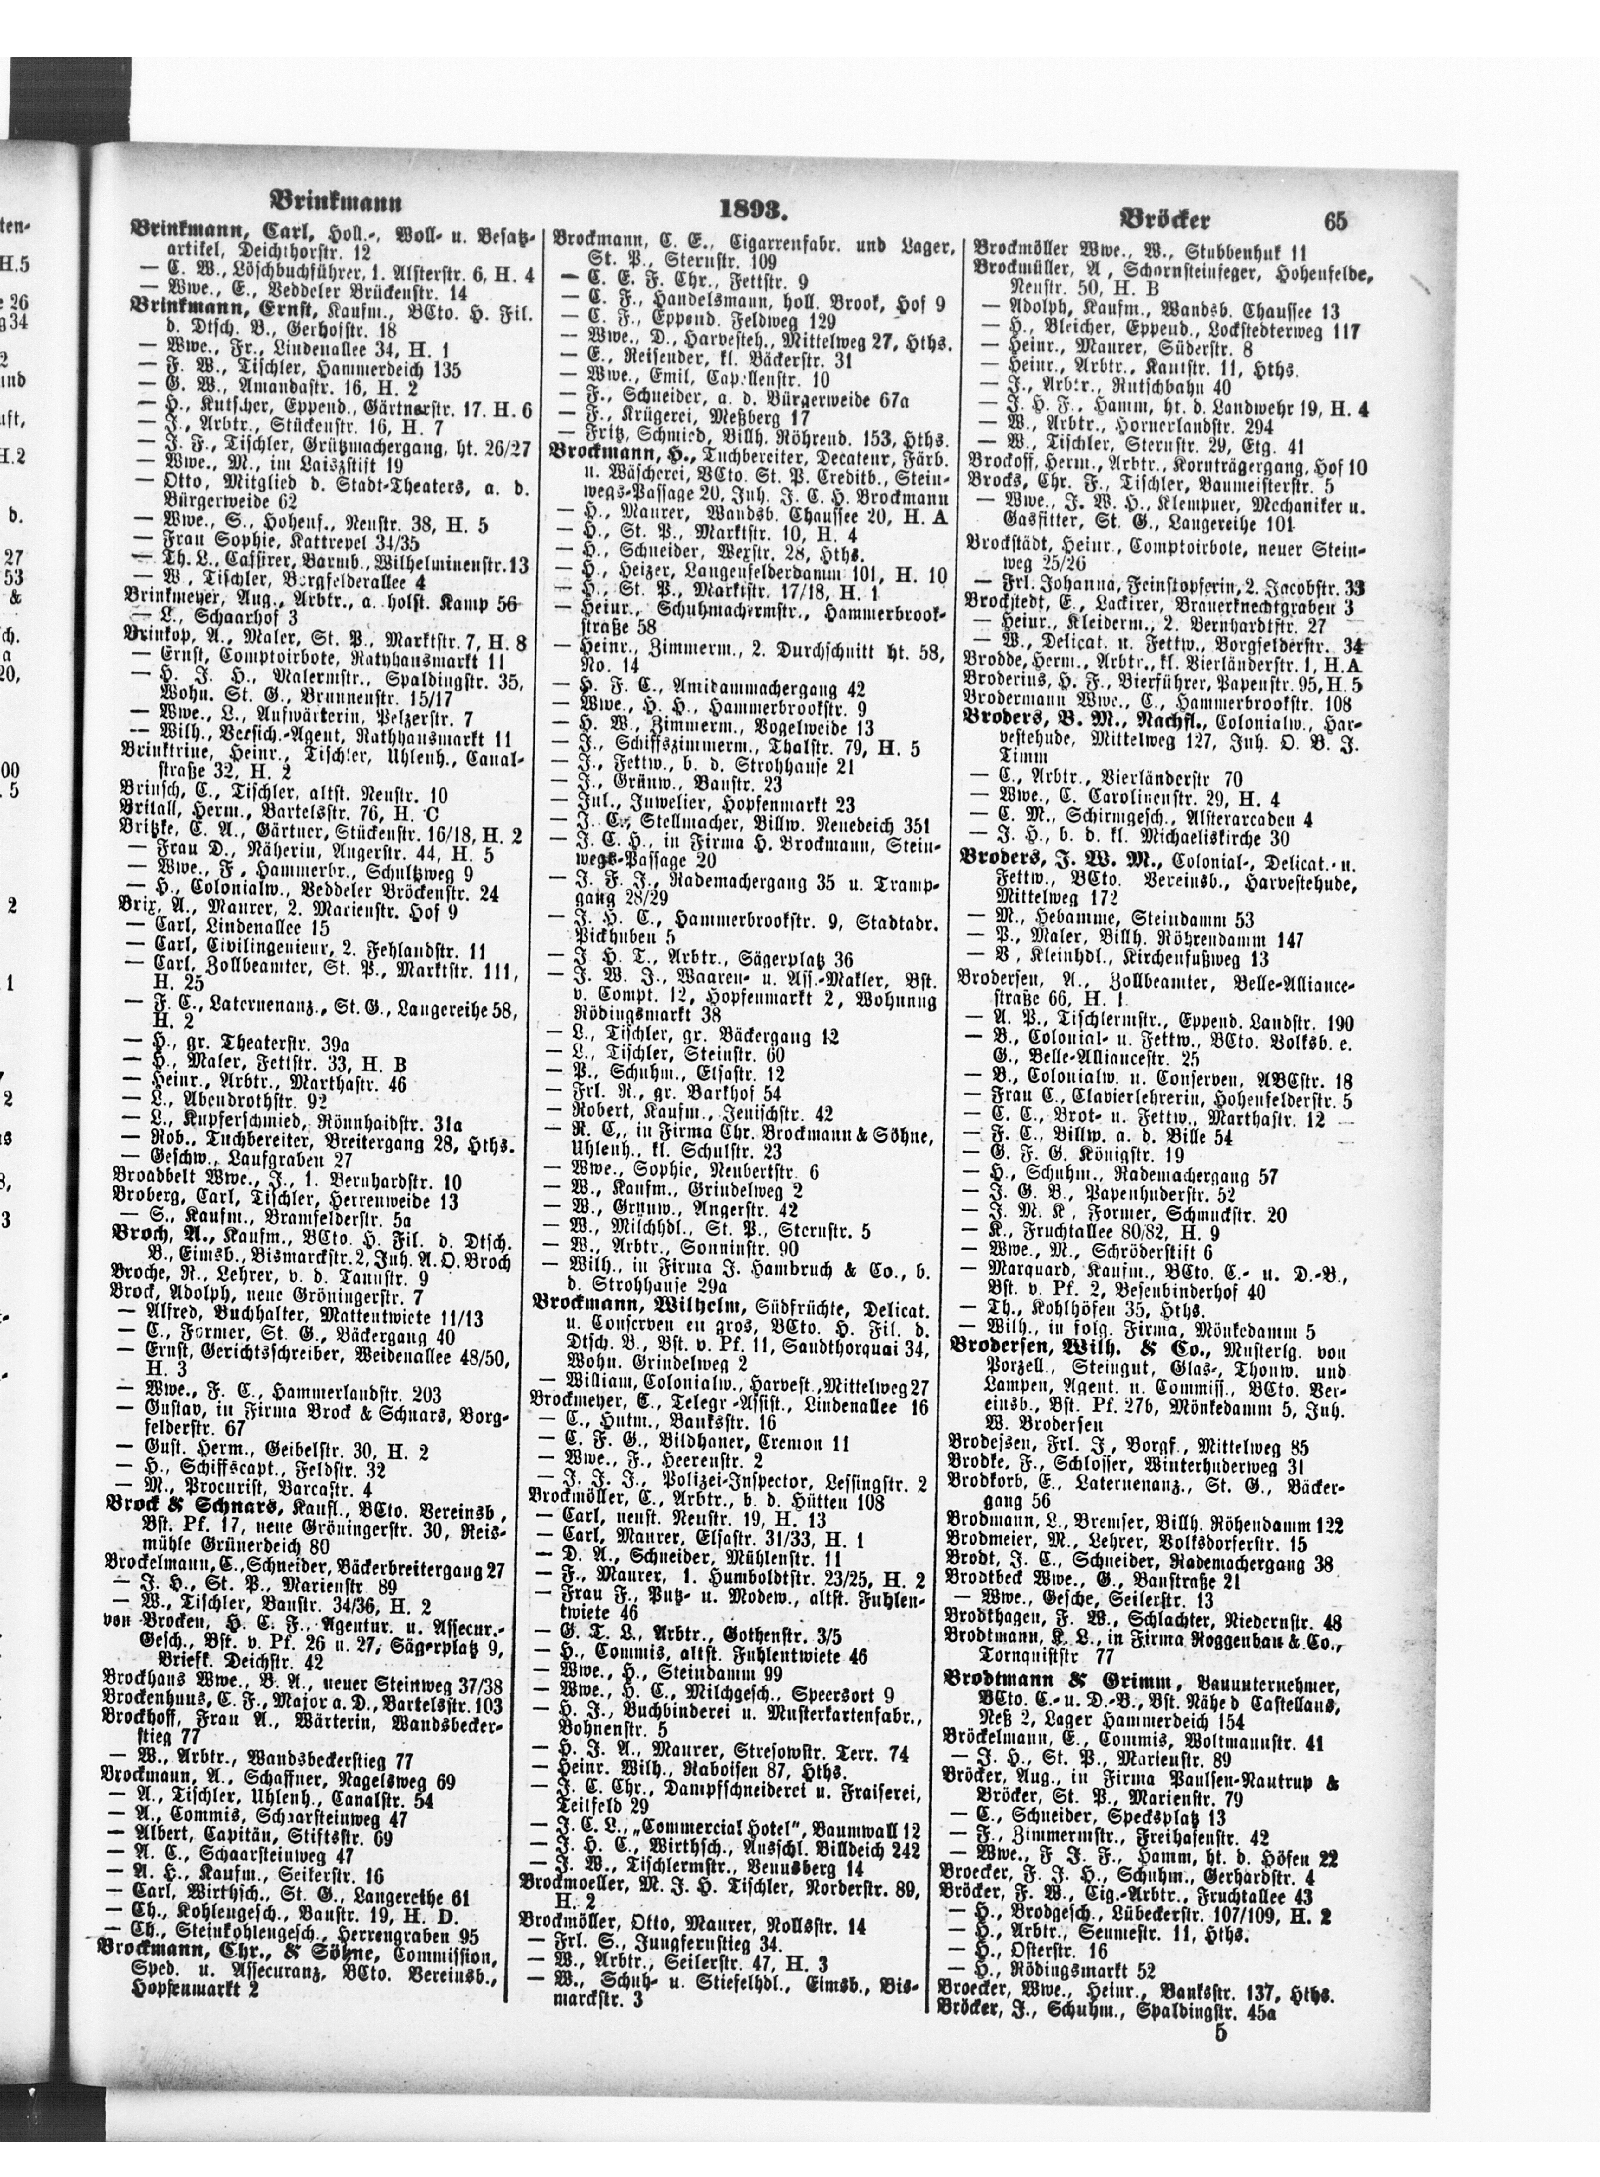 Brinkmann
1893.
Bröcker 65
Brinkmann, Carl, Holl.-, Woll- u. Besatz-
artikel, Deichthorstr. 12
— C. W., Löschbuchführer, 1. Alsterstr. 6, H. 4
— Wwe., E., Veddeler Brückenstr. 14
Brinkmann, Ernst, Kaufm., BCto. H. Fil.
d. Dtsch. B., Gerhofstr. 18
— Wwe., Fr., Lindenallee 34, H. 1
— F. W., Tischler, Hammerdeich 135
— G. W., Amandastr. 16, H. 2
— H., Kutscher, Eppend., Gärtnerstr. 17, H. 6
— J., Arbtr., Stückenstr. 16, H. 7
— J. F., Tischler, Grützmachergang, ht. 26/27
— Wwe., M., im Laiszstift 19
— Otto, Mitglied d. Stadt-Theaters, a. d.
Bürgerweide 62
— Wwe., S., Hohenf., Neustr. 38, H. 5
— Frau Sophie, Kattrepel 34/35
— Th. L., Cassirer, Barmb., Wilhelminenstr. 13
— W., Tischler, Borgfelderallee 4
Brinkmeyer, Aug., Arbtr., a. holst. Kamp 56
— L., Schaarhof 3
Brinkop, A., Maler, St. P., Marktstr. 7, H. 8
— Ernst, Comptoirbote, Rathhausmarkt 11
— H. J. H., Malermstr., Spaldingstr. 35,
Wohn. St. G., Brunnenstr. 15/17
— Wwe., L., Aufwärterin, Pelzerstr. 7
— Wilh., Versich.-Agent, Rathhausmarkt 11
Brinktrine, Heinr., Tischler, Uhlenh., Canal-
straße 32, H. 2
Brinsch, C., Tischler, altst. Neustr. 10
Britall, Herm., Bartelsstr. 76, H. C
Britzke, C. A., Gärtner, Stückenstr. 16/18, H. 2
— Frau D., Näherin, Angerstr. 44, H. 5
— Wwe., F., Hammerbr., Schultzweg 9
— H., Colonialw., Veddeler Bröckenstr. 24
Brix, A., Maurer, 2. Marienstr. Hof 9
— Carl, Lindenallee 15
— Carl, Civilingenieur, 2. Fehlandstr. 11
— Carl, Zollbeamter, St. P., Marktstr. 111,
H. 25
— F. C., Laternenanz., St. G., Langereihe 58,
H. 2
— H., gr. Theaterstr. 39a
— H., Maler, Fettstr. 33, H. B
— Heinr., Arbtr., Marthastr. 46
— L., Abendrothstr. 92
— L., Kupferschmied, Rönnhaidstr. 31a
— Rob., Tuchbereiter, Breitergang 28, Hths.
— Geschw., Laufgraben 27
Broadbelt Wwe., J., 1. Bernhardstr. 10
Broberg, Carl, Tischler, Herrenweide 13
— S., Kaufm., Bramfelderstr. 5a
Broch, A., Kaufm., BCto. H. Fil. d. Dtsch.
B., Eimsb., Bismarckstr. 2, Inh. A. O. Broch
Broche, R., Lehrer, v. d. Tannstr. 9
Brock, Adolph, neue Gröningerstr. 7
— Alfred, Buchhalter, Mattentwiete 11/13
— C., Former, St. G., Bäckergang 40
— Ernst, Gerichtsschreiber, Weidenallee 48/50,
H. 3
— Wwe., F. C., Hammerlandstr. 203
— Gustav, in Firma Brock & Schnars, Borg-
felderstr. 67
— Gust. Herm., Geibelstr. 30, H. 2
— H., Schiffscapt., Feldstr. 32
— M., Procurist, Barcastr. 4
Brock & Schnars, Kaufl., BCto. Vereinsb.,
Bst. Pf. 17, neue Gröningerstr. 30, Reis-
mühle Grünerdeich 80
Brockelmann, C., Schneider, Bäckerbreitergang 27
— J. H., St. P., Marienstr. 89
— W., Tischler, Baustr. 34/36, H. 2
von Brocken, H. C. F., Agentur. u. Assecur.-
Gesch., Bst. v. Pf. 26 u. 27, Sägerplatz 9,
Briefk. Deichstr. 42
Brockhaus Wwe., B. A., neuer Steinweg 37/38
Brockenhuus, C. F., Major a. D., Bartelsstr. 103
Brockhoff, Frau A., Wärterin, Wandsbecker-
stieg 77
— W., Arbtr., Wandsbeckerstieg 77
Brockmann, A., Schaffner, Nagelsweg 69
— A., Tischler, Uhlenh., Canalstr. 54
— A., Commis, Schaarsteinweg 47
— Albert, Capitän, Stiftsstr. 69
— A. C., Schaarsteinweg 47
— A. H., Kaufm., Seilerstr. 16
— Carl, Wirthsch., St. G., Langereihe 61
— Ch., Kohlengesch., Baustr. 19, H. D.
— Ch., Steinkohlengesch., Herrengraben 95
Brockmann, Chr., & Söhne, Commission,
Sped. u. Assecuranz, BCto. Vereinsb.,
Hopfenmarkt 2
Brockmann, C. E., Cigarrenfabr. und Lager,
St. P., Sternstr. 109
— C. E. F. Chr., Fettstr. 9
— C. F., Handelsmann, holl. Brook, Hof 9
— C. F., Eppend. Feldweg 129
— Wwe., D., Harvesteh., Mittelweg 27, Hths.
— E., Reisender, kl. Bäckerstr. 31
— Wwe., Emil, Capellenstr. 10
— F., Schneider, a. d. Bürgerweide 67a
— F., Krügerei, Meßberg 17
— Fritz, Schmied, Billh. Röhrend. 153, Hths.
Brockmann, H., Tuchbereiter, Decateur, Färb.
u. Wäscherei, BCto. St. P. Creditb., Stein-
wegs-Passage 20, Inh. J. C. H. Brockmann
— H., Maurer, Wandsb. Chaussee 20, H. A
— H., St. P., Marktstr. 10, H. 4
— H., Schneider, Wexstr. 28, Hths.
— H., Heizer, Langenfelderdamm 101, H. 10
— H., St. P., Marktstr. 17/18, H. 1
— Heinr., Schuhmachermstr., Hammerbrook-
straße 58
— Heinr., Zimmerm., 2. Durchschnitt ht. 58,
No. 14
— H. F. C., Amidammachergang 42
— Wwe., H. H., Hammerbrookstr. 9
— H. W., Zimmerm., Vogelweide 13
— J., Schiffszimmerm., Thalstr. 79, H. 5
— J., Fettw., b. d. Strohhause 21
— J., Grünw., Baustr. 23
— Jul., Juwelier, Hopfenmarkt 23
— J. C., Stellmacher, Billw. Neuedeich 351
— J. C. H., in Firma H. Brockmann, Stein-
wegs-Passage 20
— J. F. J., Rademachergang 35 u. Tramp-
gang 28/29
— J. H. C., Hammerbrookstr. 9, Stadtadr.
Pickhuben 5
— J. H. T., Arbtr., Sägerplatz 36
— J. W. J., Waaren- u. Ass.-Makler, Bst.
v. Compt. 12, Hopfenmarkt 2, Wohnung
Rödingsmarkt 38
— L., Tischler, gr. Bäckergang 12
— L., Tischler, Steinstr. 60
— P., Schuhm., Elsastr. 12
— Frl. R., gr. Barkhof 54
— Robert, Kaufm., Jenischstr. 42
— R. C., in Firma Chr. Brockmann & Söhne,
Uhlenh., kl. Schulstr. 23
— Wwe., Sophie, Neubertstr. 6
— W., Kaufm., Grindelweg 2
— W., Grünw., Angerstr. 42
— W., Milchhdl., St. P., Sternstr. 5
— W., Arbtr., Sonninstr. 90
— Wilh., in Firma J. Hambruch & Co., b.
d. Strohhause 29a
Brockmann, Wilhelm, Südfrüchte, Delicat.
u. Conserven en gros, BCto. H. Fil. d.
Dtsch. B., Bst. v. Pf. 11, Sandthorquai 34,
Wohn. Grindelweg 2
— William, Colonialw., Harvest., Mittelweg 27
Brockmeyer, C., Telegr.-Assist., Lindenallee 16
— C., Hutm., Banksstr. 16
— C. F. G., Bildhauer, Cremon 11
— Wwe., F., Heerenstr. 2
— J. J. J., Polizei-Inspector, Lessingstr. 2
Brockmöller, C., Arbtr., b. d. Hütten 108
— Carl, neust. Neustr. 19, H. 13
— Carl, Maurer, Elsastr. 31/33, H. 1
— D. A., Schneider, Mühlenstr. 11
— F., Maurer, 1. Humboldtstr. 23/25, H. 2
— Frau F., Putz- u. Modew., altst. Fuhlen-
twiete 46
— G. T. L., Arbtr., Gothenstr. 3/5
— H., Commis, altst. Fuhlentwiete 46
— Wwe., H., Steindamm 99
— Wwe., H. C., Milchgesch., Speersort 9
— H. J., Buchbinderei u. Musterkartenfabr.,
Bohnenstr. 5
— H. J. A., Maurer, Stresowstr. Terr. 74
— Heinr. Wilh., Raboisen 87, Hths.
— J. C. Chr., Dampfschneiderei u. Fraiserei,
Teilfeld 29
— J. C. L., „Commercial Hotel", Baumwall 12
— J. H. C., Wirthsch., Ausschl. Billdeich 242
— J. W., Tischlermstr., Venusberg 14
Brockmoeller, M. J. H. Tischler, Norderstr. 89,
H. 2
Brockmöller, Otto, Maurer, Rollsstr. 14
— Frl. S., Jungfernstieg 34.
— W., Arbtr., Seilerstr. 47, H. 3
— W., Schuh- u. Stiefelhdl., Eimsb., Bis-
marckstr. 3
Brockmöller Wwe., W., Stubbenhuk 11
Brockmüller, A., Schornsteinfeger, Hohenfelde,
Neustr. 50, H. B
— Adolph, Kaufm., Wandsb. Chaussee 13
— H., Bleicher, Eppend., Lockstedterweg 117
— Heinr., Maurer, Süderstr. 8
— Heinr., Arbtr., Kantstr. 11, Hths.
— J., Arbtr., Rutschbahn 40
— J. H. F., Hamm, ht. d. Landwehr 19, H. 4
— W., Arbtr., Hornerlandstr. 294
— W., Tischler, Sternstr. 29, Etg. 41
Brockoff, Herm., Arbtr., Kornträgergang, Hof 10
Brocks, Chr. F., Tischler, Baumeisterstr. 5
— Wwe., J. W. H., Klempner, Mechaniker u.
Gasfitter, St. G., Langereihe 101
Brockstädt, Heinr., Comptoirbote, neuer Stein-
weg 25/26
— Frl. Johanna, Feinstopferin, 2. Jacobstr. 33
Brockstedt, E., Lackirer, Brauerknechtgraben 3
— Heinr., Kleiderm., 2. Bernhardtstr. 27
— W., Delicat. u. Fettw., Borgfelderstr. 34
Brodde, Herm., Arbtr., kl. Vierländerstr. 1, H. A
Broderius, H. F., Bierführer, Papenstr. 95, H. 5
Brodermann Wwe., C., Hammerbrookstr. 108
Broders, B. M., Nachfl., Colonialw., Har-
vestehude, Mittelweg 127, Inh. O. B. J.
Timm
— C., Arbtr., Vierländerstr. 70
— Wwe., C. Carolinenstr. 29, H. 4
— C. M., Schirmgesch., Alsterarcaden 4
— J. H., b. d. kl. Michaeliskirche 30
Broders, J. W. M., Colonial-, Delicat.- u.
Fettw., BCto. Vereinsb., Harvestehude,
Mittelweg 172
— M., Hebamme, Steindamm 53
— P., Maler, Billh. Röhrendamm 147
— V., Kleinhdl., Kirchenfußweg 13
Brodersen, A., Zollbeamter, Belle-Alliance-
straße 66, H. 1
— A. P., Tischlermstr., Eppend. Landstr. 190
— B., Colonial- u. Fettw., BCto. Volksb. e.
G., Belle-Alliancestr. 25
— B., Colonialw. u. Conserven, ABCstr. 18
— Frau C., Clavierlehrerin, Hohenfelderstr. 5
— C. C., Brot- u. Fettw., Marthastr. 12
— F. C., Billw. a. d. Bille 54
— G. F. G. Königstr. 19
— H., Schuhm., Rademachergang 57
— J. G. B., Papenhuderstr. 52
— J. M. K., Former, Schmuckstr. 20
— K., Fruchtallee 80/82, H. 9
— Wwe., M., Schröderstift 6
— Marquard, Kaufm., BCto. C.- u. D.-B.,
Bst. v. Pf. 2, Besenbinderhof 40
— Th., Kohlhöfen 35, Hths.
— Wilh., in folg. Firma, Mönkedamm 5
Brodersen, Wilh. & Co., Musterlg. von
Porzell., Steingut, Glas-, Thonw. und
Lampen, Agent. u. Commiss., BCto. Ver-
einsb., Bst. Pf. 27b, Mönkedamm 5, Inh.
W. Brodersen
Brodejsen, Frl. J., Borgf., Mittelweg 85
Brodke, F., Schlosser, Winterhuderweg 31
Brodkorb, E., Laternenanz., St. G., Bäcker-
gang 56
Brodmann, L., Bremser, Billh. Röhendamm 122
Brodmeier, M., Lehrer, Volksdorferstr. 15
Brodt, J. C., Schneider, Rademachergang 38
Brodtbeck Wwe., G., Baustraße 21
— Wwe., Gesche, Seilerstr. 13
Brodthagen, F. W., Schlachter, Niedernstr. 48
Brodtmann, K. L., in Firma Roggenbau & Co.,
Tornquiststr. 77
Brodtmann & Grimm, Bauunternehmer,
BCto. C.- u. D.-B., Bst. Nähe d Castellans,
Neß 2, Lager Hammerdeich 154
Bröckelmann, E., Commis, Woltmannstr. 41
— J. H., St. P., Marienstr. 89
Bröcker, Aug., in Firma Paulsen-Nautrup &
Bröcker, St. P., Marienstr. 79
— C., Schneider, Specksplatz 13
— F., Zimmermstr., Freihafenstr. 42
— Wwe., F. J. F., Hamm, ht. d. Höfen 22
Broecker, F. J. H., Schuhm., Gerhardstr. 4
Bröcker, F. W., Cig.-Arbtr., Fruchtallee 43
— H., Brodgesch., Lübeckerstr. 107/109, H. 2
— H., Arbtr., Seumestr. 11, Hths.
— H., Osterstr. 16
— H., Rödingsmarkt 52
Broecker, Wwe., Heinr., Banksstr. 137, Hths.
Bröcker, J., Schuhm., Spaldingstr. 45a
5